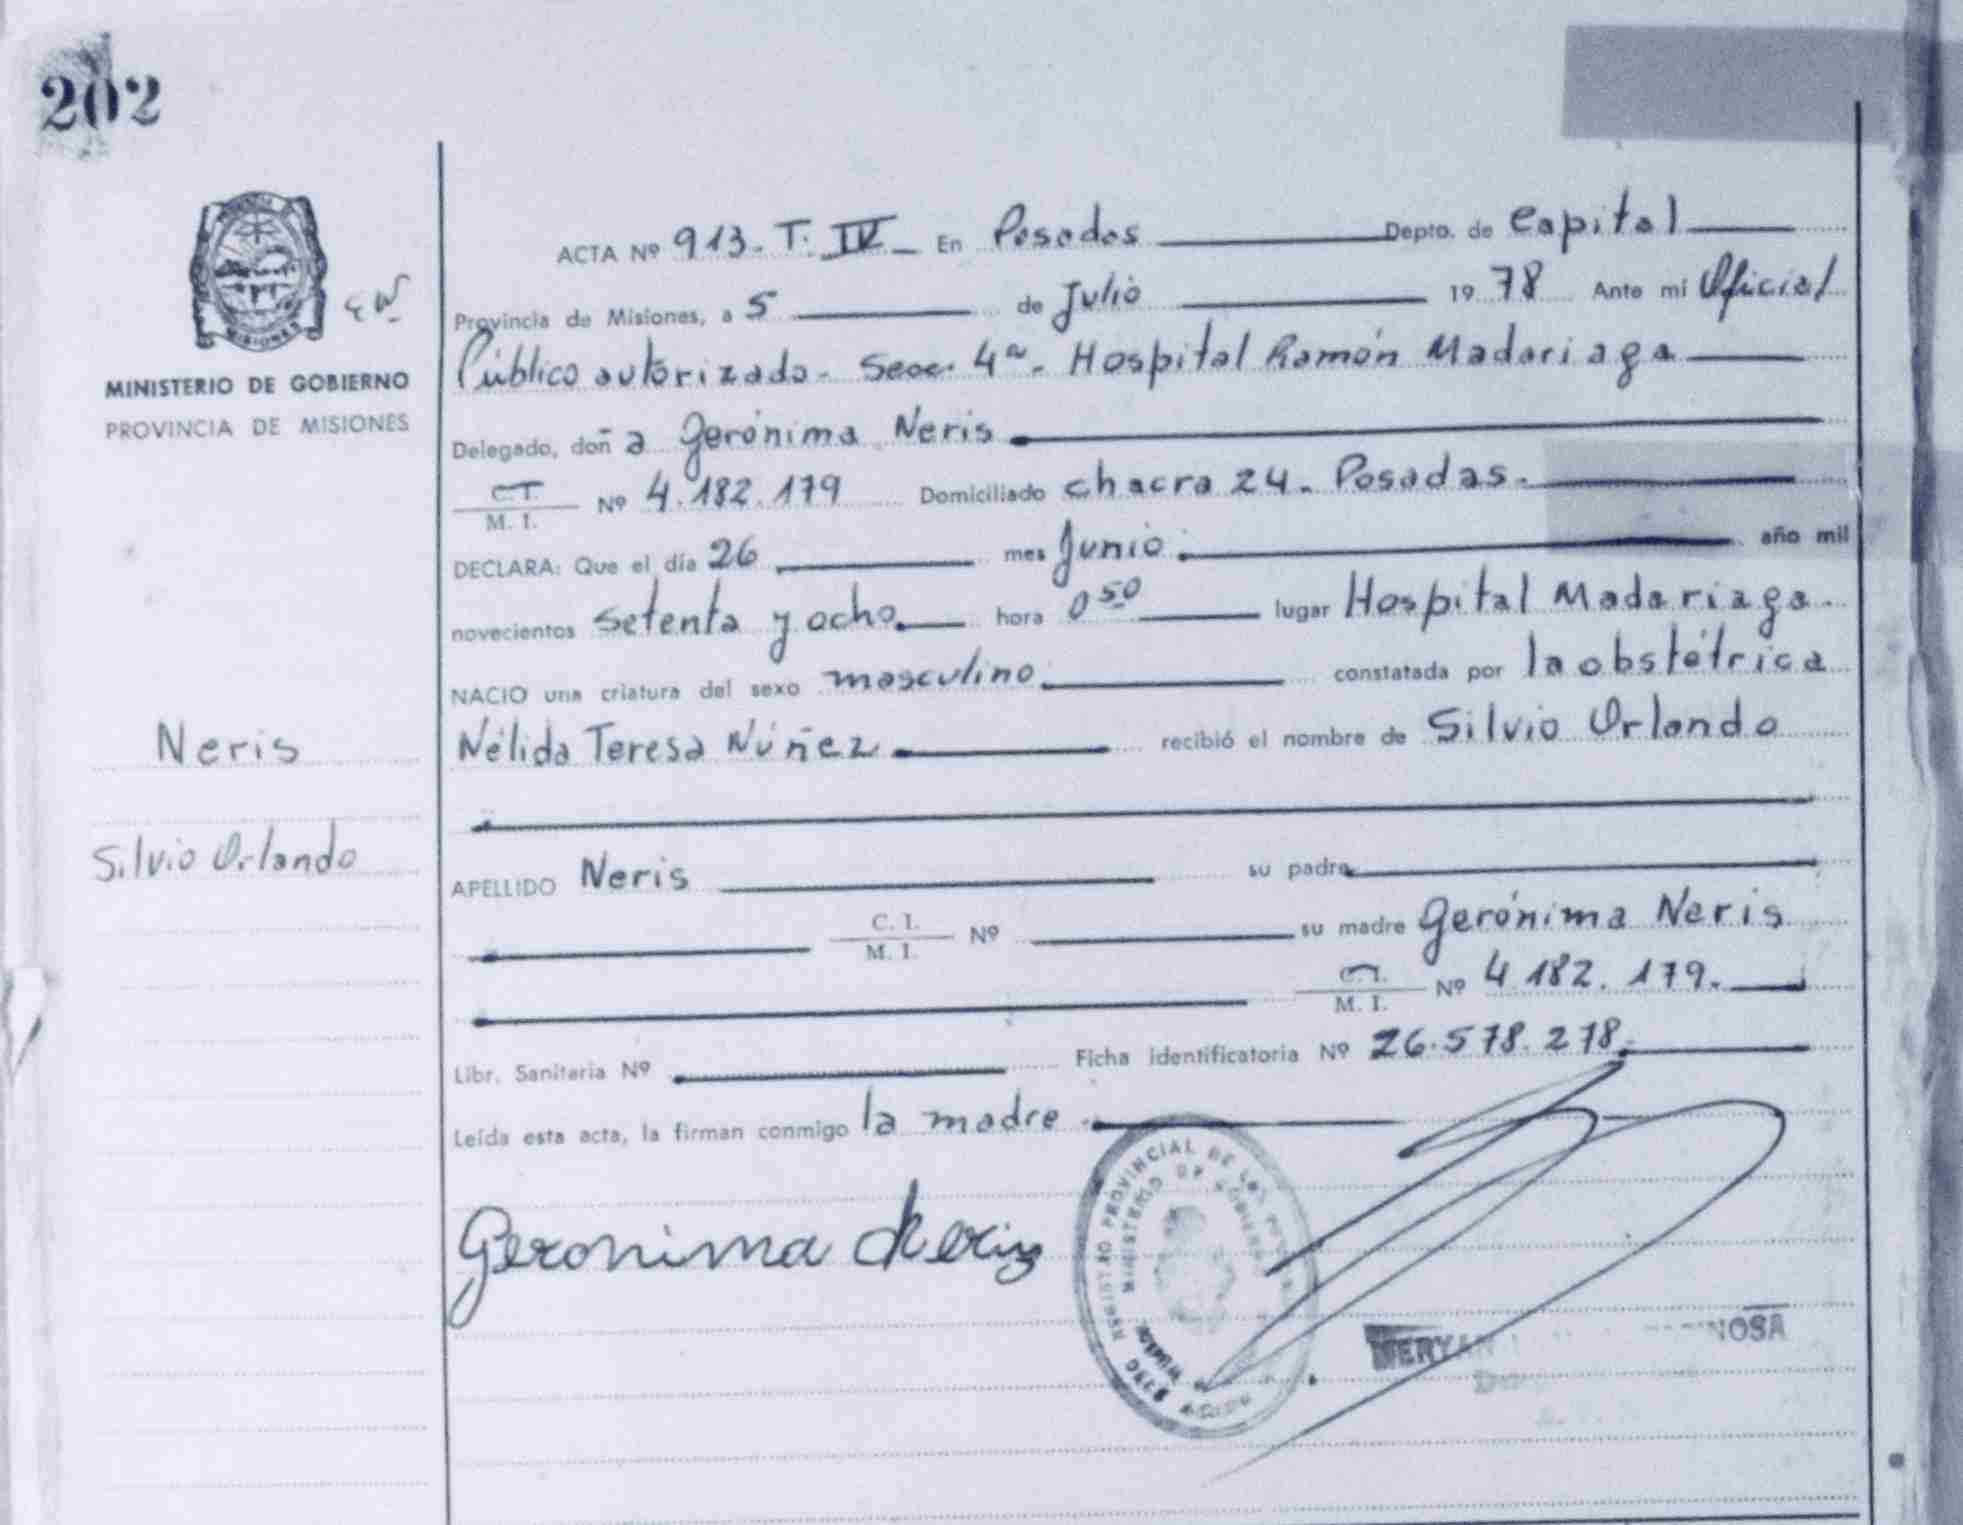 202
MINISTERIO DE GOBIERNO
PROVINCIA DE MISIONES
ACTA Nº 913 - T. IV - En Posadas Depto. de Capital
Provincia de Misiones, a 5 de Julio 1978 Ante mi Oficial
Público autorizado - Secc. 4ª - Hospital Ramón Madariaga
Delegado, doña Gerónima Neris
C.I. / M. I. Nº 4.182.179 Domiciliado chacra 24 - Posadas -
DECLARA: Que el día 26 mes Junio año mil
novecientos setenta y ocho hora 0 50 lugar Hospital Madariaga -
NACIO una criatura del sexo masculino constatada por la obstétrica
Neris
Nélida Teresa Núñez recibió el nombre de Silvio Orlando
Silvio Orlando
APELLIDO Neris su padre
C. I. / M. I. Nº su madre Gerónima Neris
C.I. / M. I. Nº 4.182.179.
Libr. Sanitaria Nº Ficha identificatoria Nº 26.578.278.
Leída esta acta, la firman conmigo la madre
Geronima Neris
REGISTRO PROVINCIAL DE LAS
MINISTERIO DE GOBIERNO